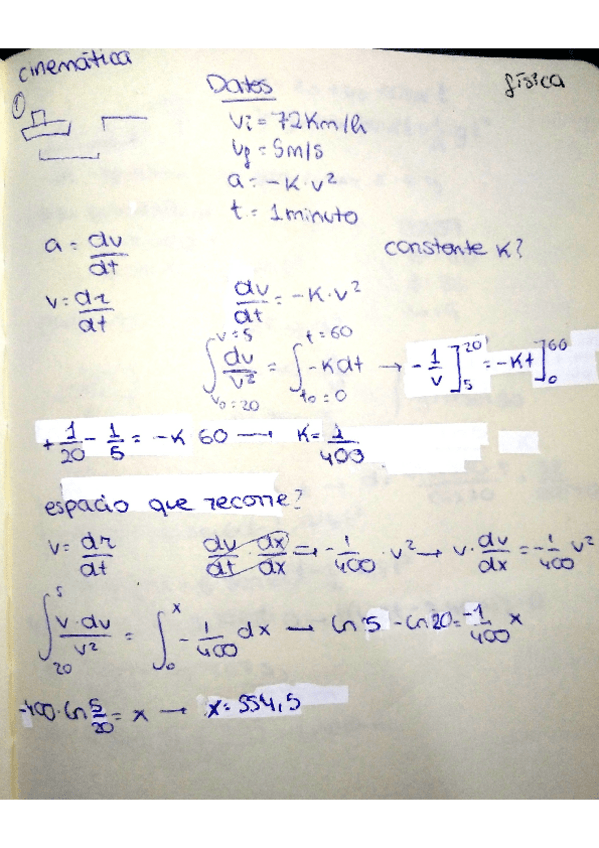 cinemática
física
① Datos
Vi = 72 Km/h
Vf = 5 m/s
a = -K · v²
t = 1 minuto
a = dv/dt
constante K?
v = dr/dt dv/dt = -K · v²
∫ v₀=20 v=5 dv/v² = ∫ t₀=0 t=60 -Kdt → -1/v ]₅²⁰ = -Kt ]₀⁶⁰
+ 1/20 - 1/5 = -K 60 → K = 1/400
espacio que recorre?
v = dr/dt dv/dt · dx/dx = → -1/400 · v² → v · dv/dx = -1/400 v²
∫₂₀⁵ v · dv/v² = ∫₀ˣ -1/400 dx → Ln 5 - Ln 20 = -1/400 x
-400 · Ln 5/20 = x → x = 554,5